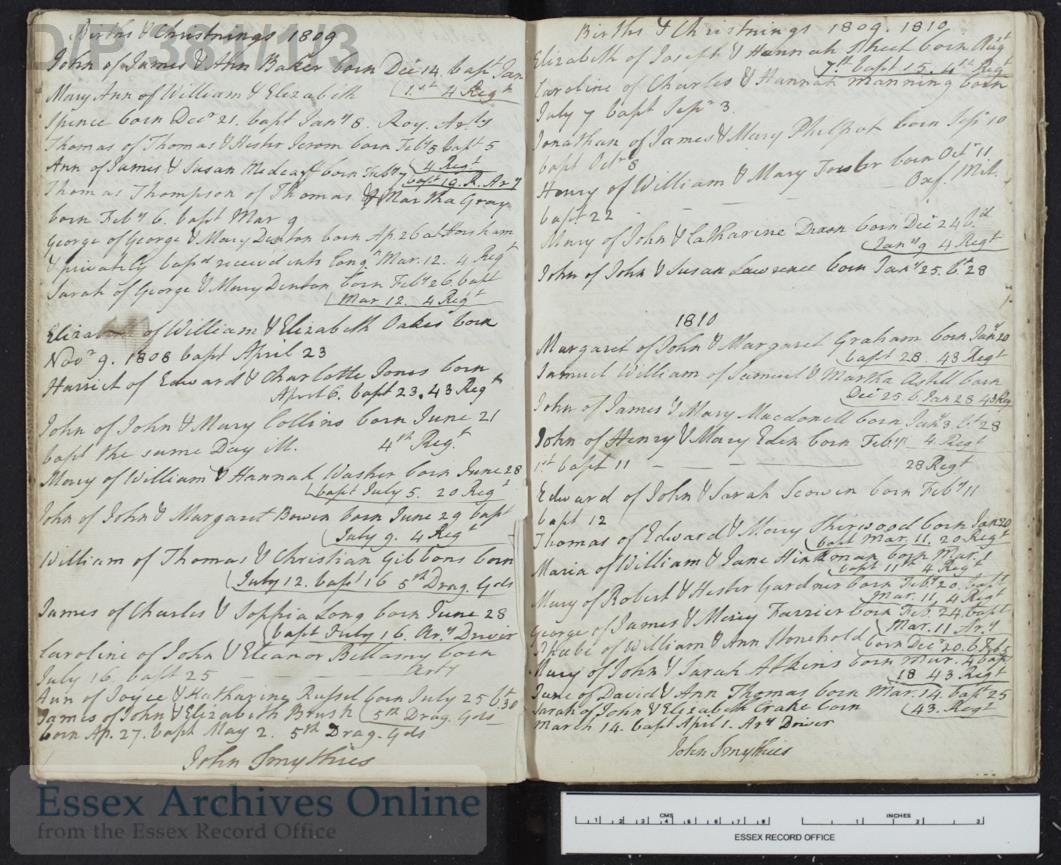 D/P 381/1/3
Births & Christnings 1809
John of James & Ann Baker born Dec 14. bapt Jan
1st 4 Regt
Mary Ann of William & Elizabeth
Spence born Decr 21. bapt Jany 8. Roy. Arty
Thomas of Thomas & Hester Jerom born Feby 5 bapt 5
4 Regt
Ann of James & Susan Medcalf born Feby 7
bapt 19. R. Ary
Thomas Thompson of Thomas & Martha Gray
born Feby 6. bapt Mar 9
George of George & Mary Denton born Ap. 26 at Horsham
& privately bapd received into Congn Mar. 12. 4 Regt
Sarah of George & Mary Denton born Feby 26. bapt
Mar 12. 4 Regt
of William & Elizabeth Oakes born
Novr 9. 1808 bapt April 23
Harriet of Edward & Charlotte Jones born
April 6. bapt 23. 43 Regt
John of John & Mary Collins born June 21
bapt the same Day ill. 4th Regt
Mary of William & Hannah Washer born June 28
bapt July 5. 20 Regt
John of John & Margaret Bowen born June 29 bapt
July 9. 4 Regt
William of Thomas & Christian Gibbons born
July 12. bapt 16 5th Drag. Gds
James of Charles & Sophia Long born June 28
bapt July 16. Ary Driver
Caroline of John & Eleanor Bellamy born
July 16. bapt 25 Arty
Ann of Joyce & Katharine Russel born July 25 bt 30
5th Drag. Gds
James of John & Elizabeth Brush
born Ap. 27. bapt May 2. 5th Drag. Gds
John Smythies
Births & Christnings 1809. 1810
Elizabeth of Joseph & Hannah Street born Augt
7th bapt 15. 4th Regt
Caroline of Charles & Hannah Manning born
July 7 bapt Sepr 3
Jonathan of James & Mary Philpot born Sepr 10
bapt Octr 8
Henry of William & Mary born Octr 11
bapt 22 Oxf. Mil.
Mary of John & Catharine Dixon born Dec 24
Jany 9 4 Regt
John of John & Susan Lawrence born Jany 25. bt 28
1810
Margaret of John & Margaret Graham born Jany 20
bapt 28. 43 Regt
Samuel William of Samuel & Martha Astill born
Dec 25. b. Jan 28 43 Reg
John of James & Mary Macdonell born Jany 3. bt 28
4 Regt
John of Henry & Mary Eden born Feby
1st bapt 11 28 Regt
Edward of John & Sarah Scowen born Feby 11
bapt 12
Thomas of Edward & Mary Sherwood born Jan 20
bapt Mar. 11. 20 Regt
Maria of William & Jane Hinkman born Mar. 1
bapt 11th 4 Regt
Mary of Robert & Hester Gardner born Feby 20. bapt
Mar. 11. 4 Regt
George of James & Mary Farrier born Feb 24. bapt
Mar. 11 Ary
Phoebe of William & Ann Stonehold born Decr 20. b. Feb 5
Mary of John & Sarah Atkins born Mar. 4 bapt
18 43 Regt
Jane of David & Ann Thomas born Mar. 14. bapt 25
43. Regt
Sarah of John & Elizabeth Crake born
March 14. bapt April 1. Ary Driver
John Smythies
Essex Archives Online
from the Essex Record Office
CMS
INCHES
ESSEX RECORD OFFICE